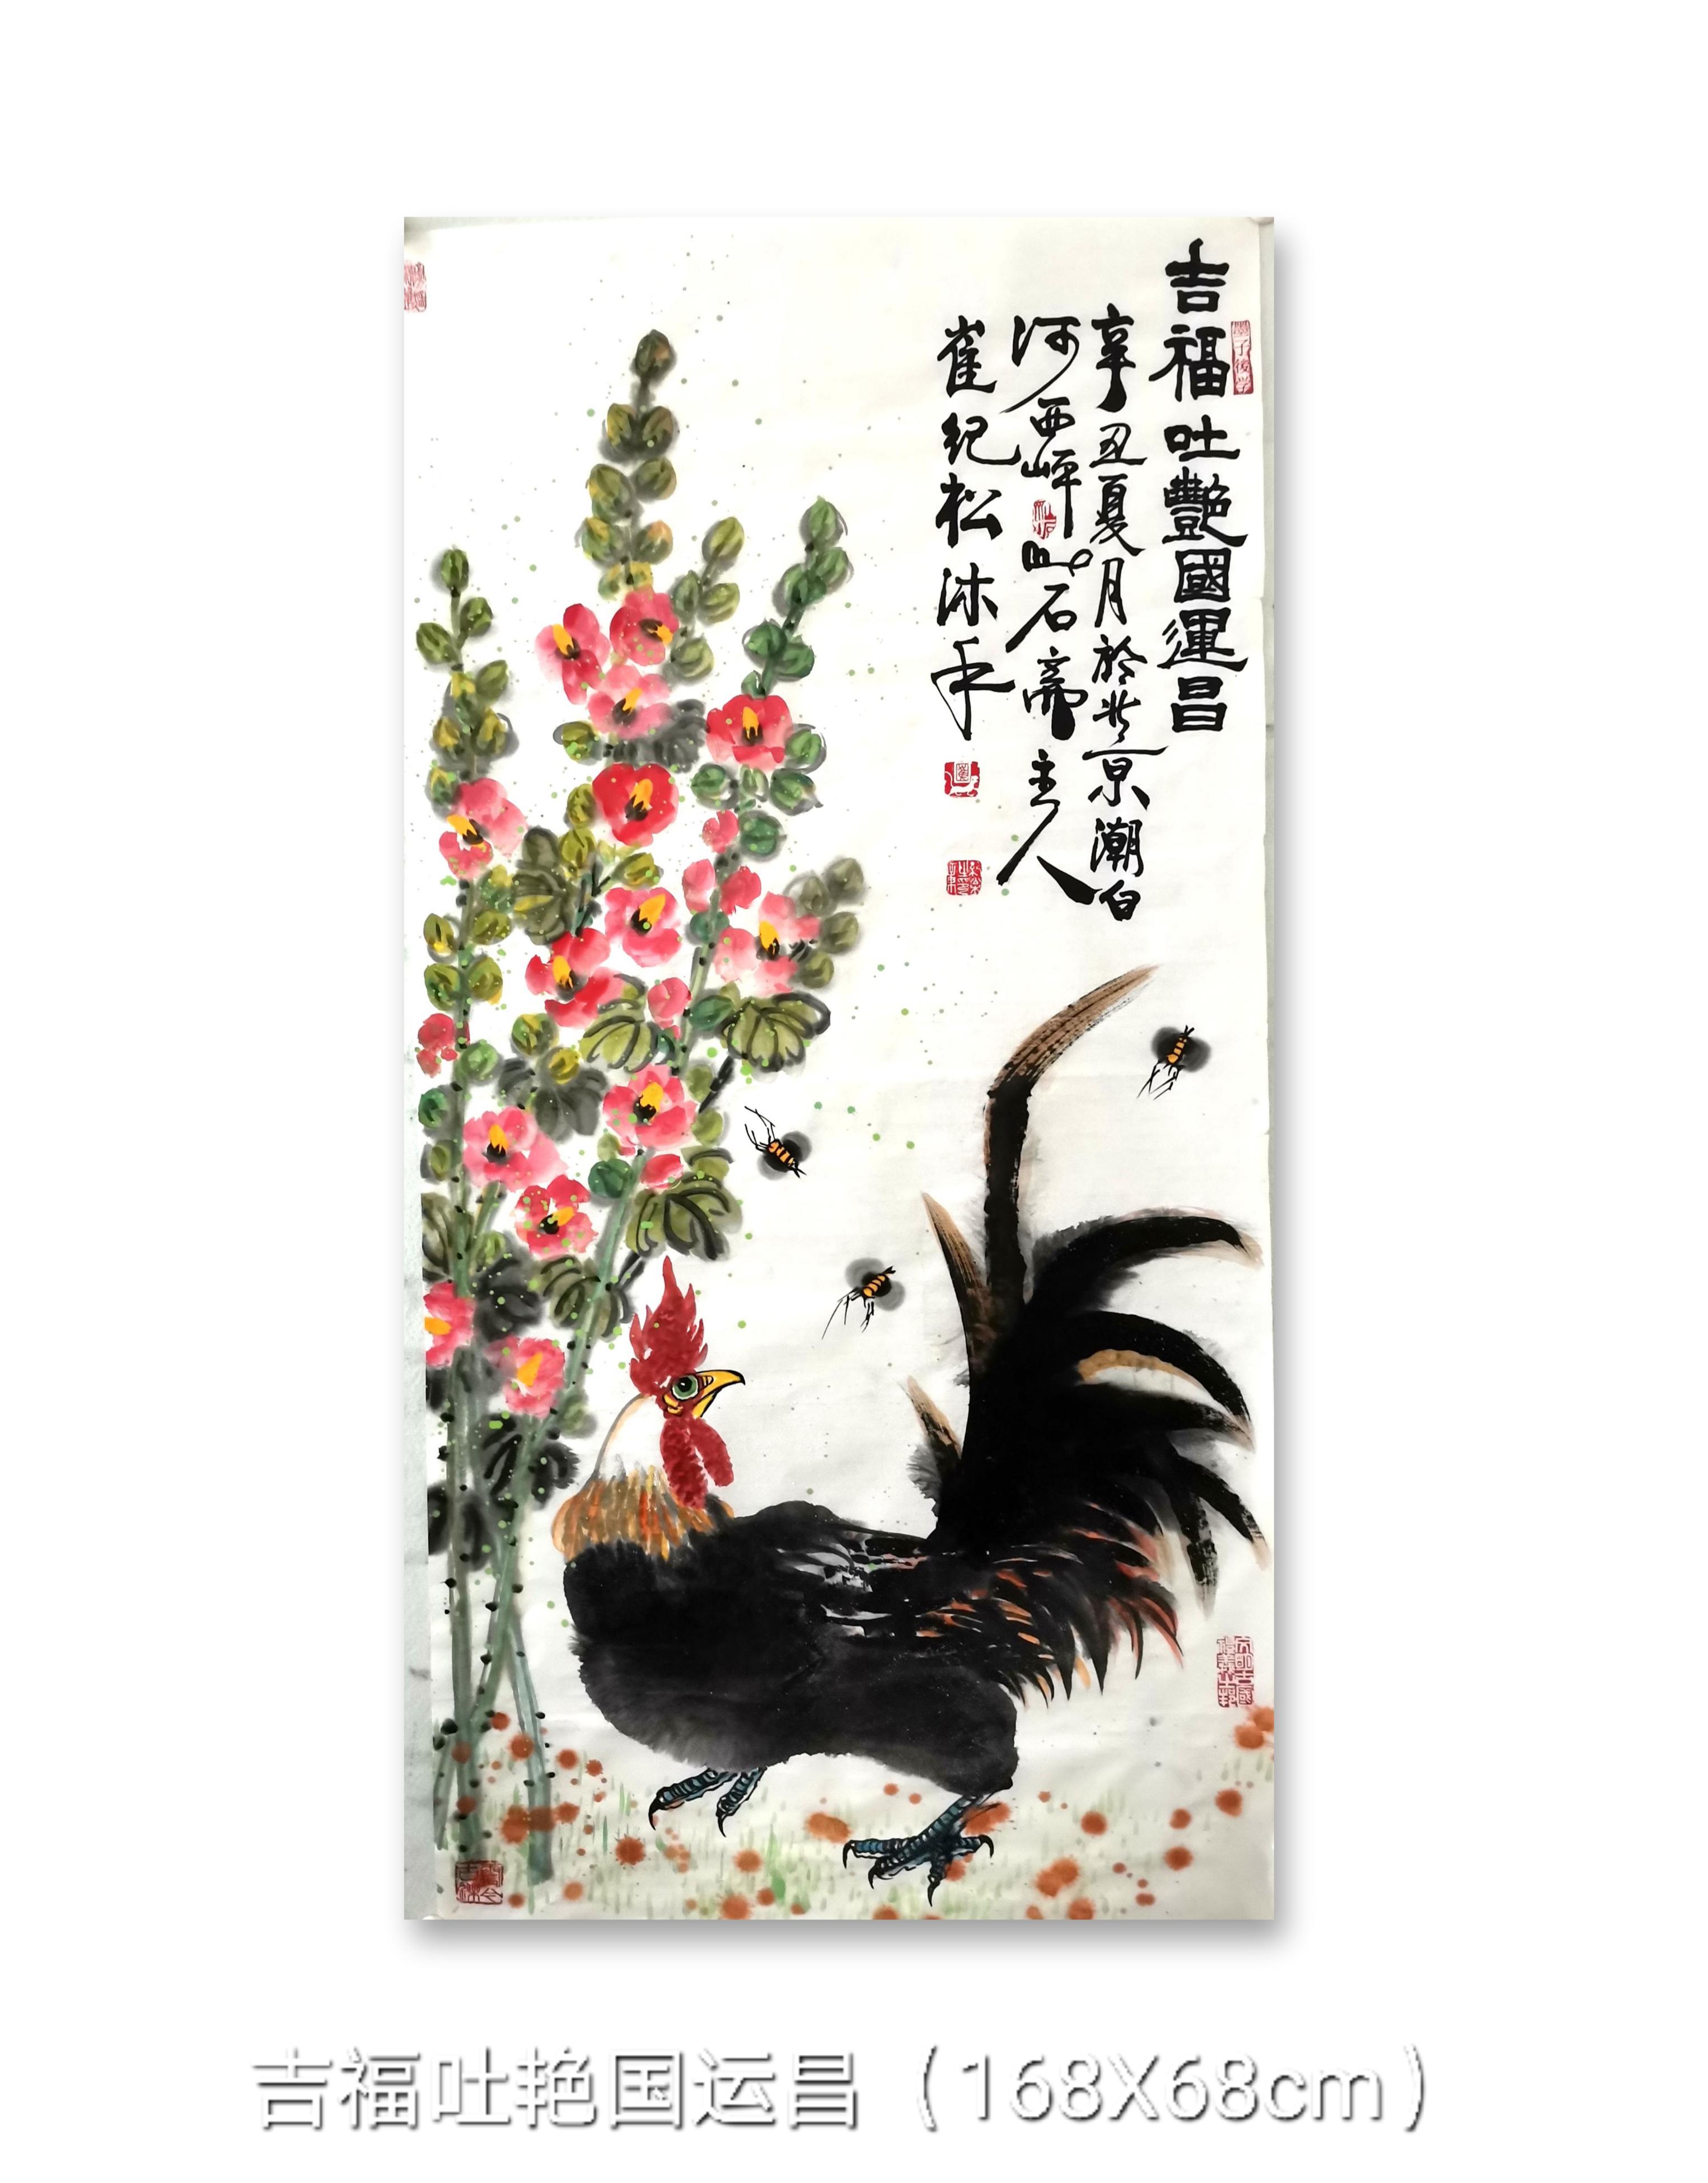 吉福吐艷國運昌
辛丑夏月於北京潮白
河西岸山石斋主人
崔纪松沐手
吉福吐艳国运昌（168X68cm）